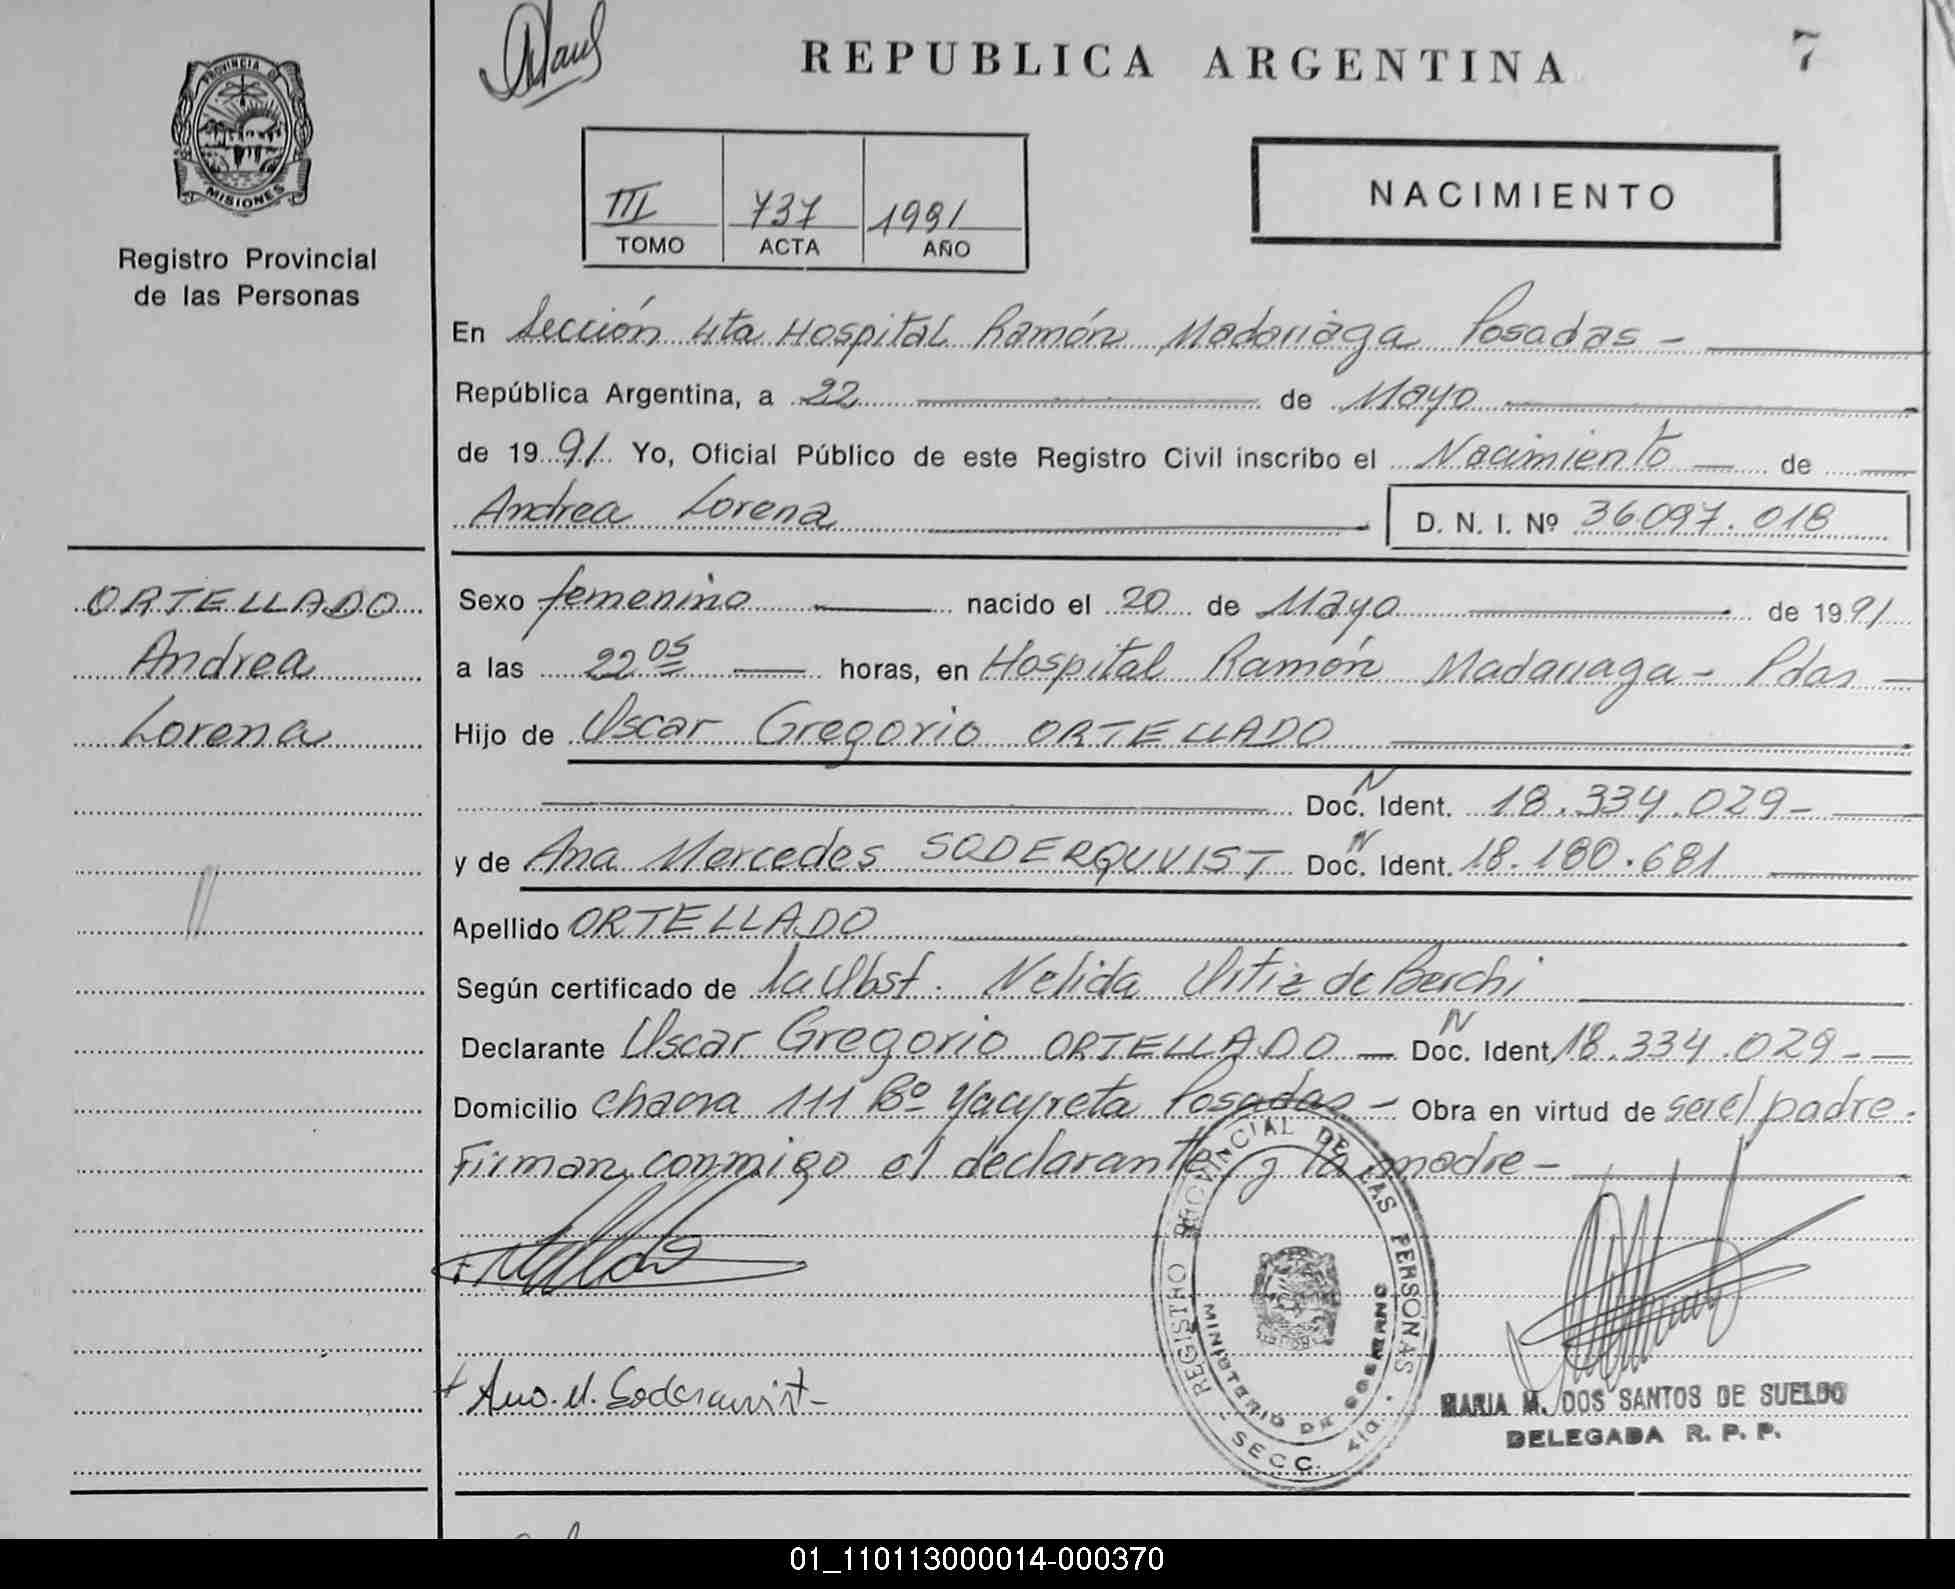 PROVINCIA DE
MISIONES
Registro Provincial
de las Personas
ORTELLADO
Andrea
Lorena
REPUBLICA ARGENTINA
7
III 737 1991
TOMO ACTA AÑO
NACIMIENTO
En Sección 4ta Hospital Ramón Madariaga Posadas -
República Argentina, a 22 de Mayo
de 1991 Yo, Oficial Público de este Registro Civil inscribo el Nacimiento de
Andrea Lorena D. N. I. Nº 36.097.018
Sexo femenino nacido el 20 de Mayo de 1991
a las 22 05 horas, en Hospital Ramón Madariaga - Pdas
Hijo de Oscar Gregorio ORTELLADO
Doc. N Ident. 18.334.029 -
y de Ana Mercedes SODERQUVIST Doc. N Ident. 18.180.681
Apellido ORTELLADO
Según certificado de la Obst. Nelida Ortiz de Berchi
Declarante Oscar Gregorio ORTELLADO - Doc. N Ident. 18.334.029 -
Domicilio chacra 111 Bº Yacyreta Posadas - Obra en virtud de ser el padre.
Firman conmigo el declarante y la madre -
REGISTRO PROVINCIAL DE LAS PERSONAS
MINISTERIO DE GOBIERNO
SECC. 4ta.
MARIA M. DOS SANTOS DE SUELDO
DELEGADA R. P. P.
01_110113000014-000370